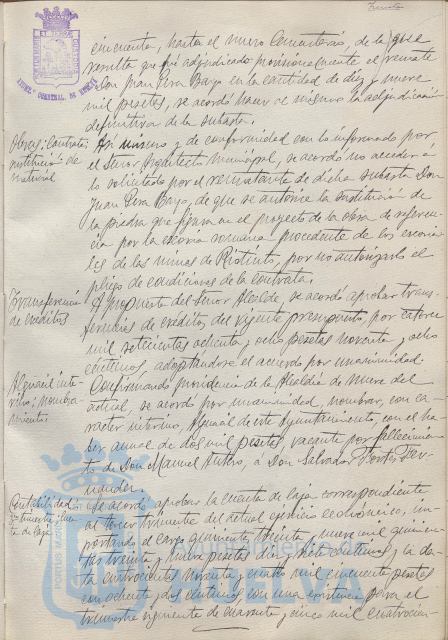 cincuenta, hasta el nuevo Cementerio, de la que
resulta que fué adjudicado provisionalmente el remate
a Don Juan Pera Bayo en la cantidad de diez y nueve
mil pesetas, se acordó hacer al mismo la adjudicación
definitiva de la subasta.
Obras: contrata:
sustitución de
material
Así mismo y de conformidad con lo informado por
el Señor Arquitecto Municipal, se acordó no acceder a
lo solicitado por el rematante de dicha subasta Don
Juan Pera Bayo, de que se autorice la sustitución de
la piedra que figura en el proyecto de la obra de referen-
cia por la escoria romana procedente de los escoria-
les de las minas de Riotinto, por no autorizarlo el
pliego de condiciones de la contrata.
Transferencia
de créditos
A propuesta del Señor Alcalde, se acordó aprobar trans-
ferencias de créditos del vigente presupuesto, por catorce
mil setecientas ochenta y ocho pesetas noventa y ocho
céntimos, adoptándose el acuerdo por unanimidad.
Alguacil inte-
rino; nombra-
miento:
Confirmando providencia de la Alcaldía de nueve del
actual, se acordó por unanimidad, nombrar, con ca-
racter interino, Alguacil de este Ayuntamiento, con el ha-
ber anual de dos mil pesetas, vacante por fallecimien-
to de Don Manuel, a Don Salvador Fer-
nandez.
Contabilidad:
trimestre, cuen-
ta de caja
Se acordó aprobar la cuenta de caja correspondiente
al tercer trimestre del actual ejercicio económico, im-
portando el cargo quinientas treinta y nueve mil quinien-
tas treinta y nueve pesetas siete céntimos y la da-
ta cuatrocientas noventa y cuatro mil cincuenta pesetas
ochenta y dos céntimos con una existencia para el
trimestre siguiente de cuarenta y cinco mil cuatrocien-